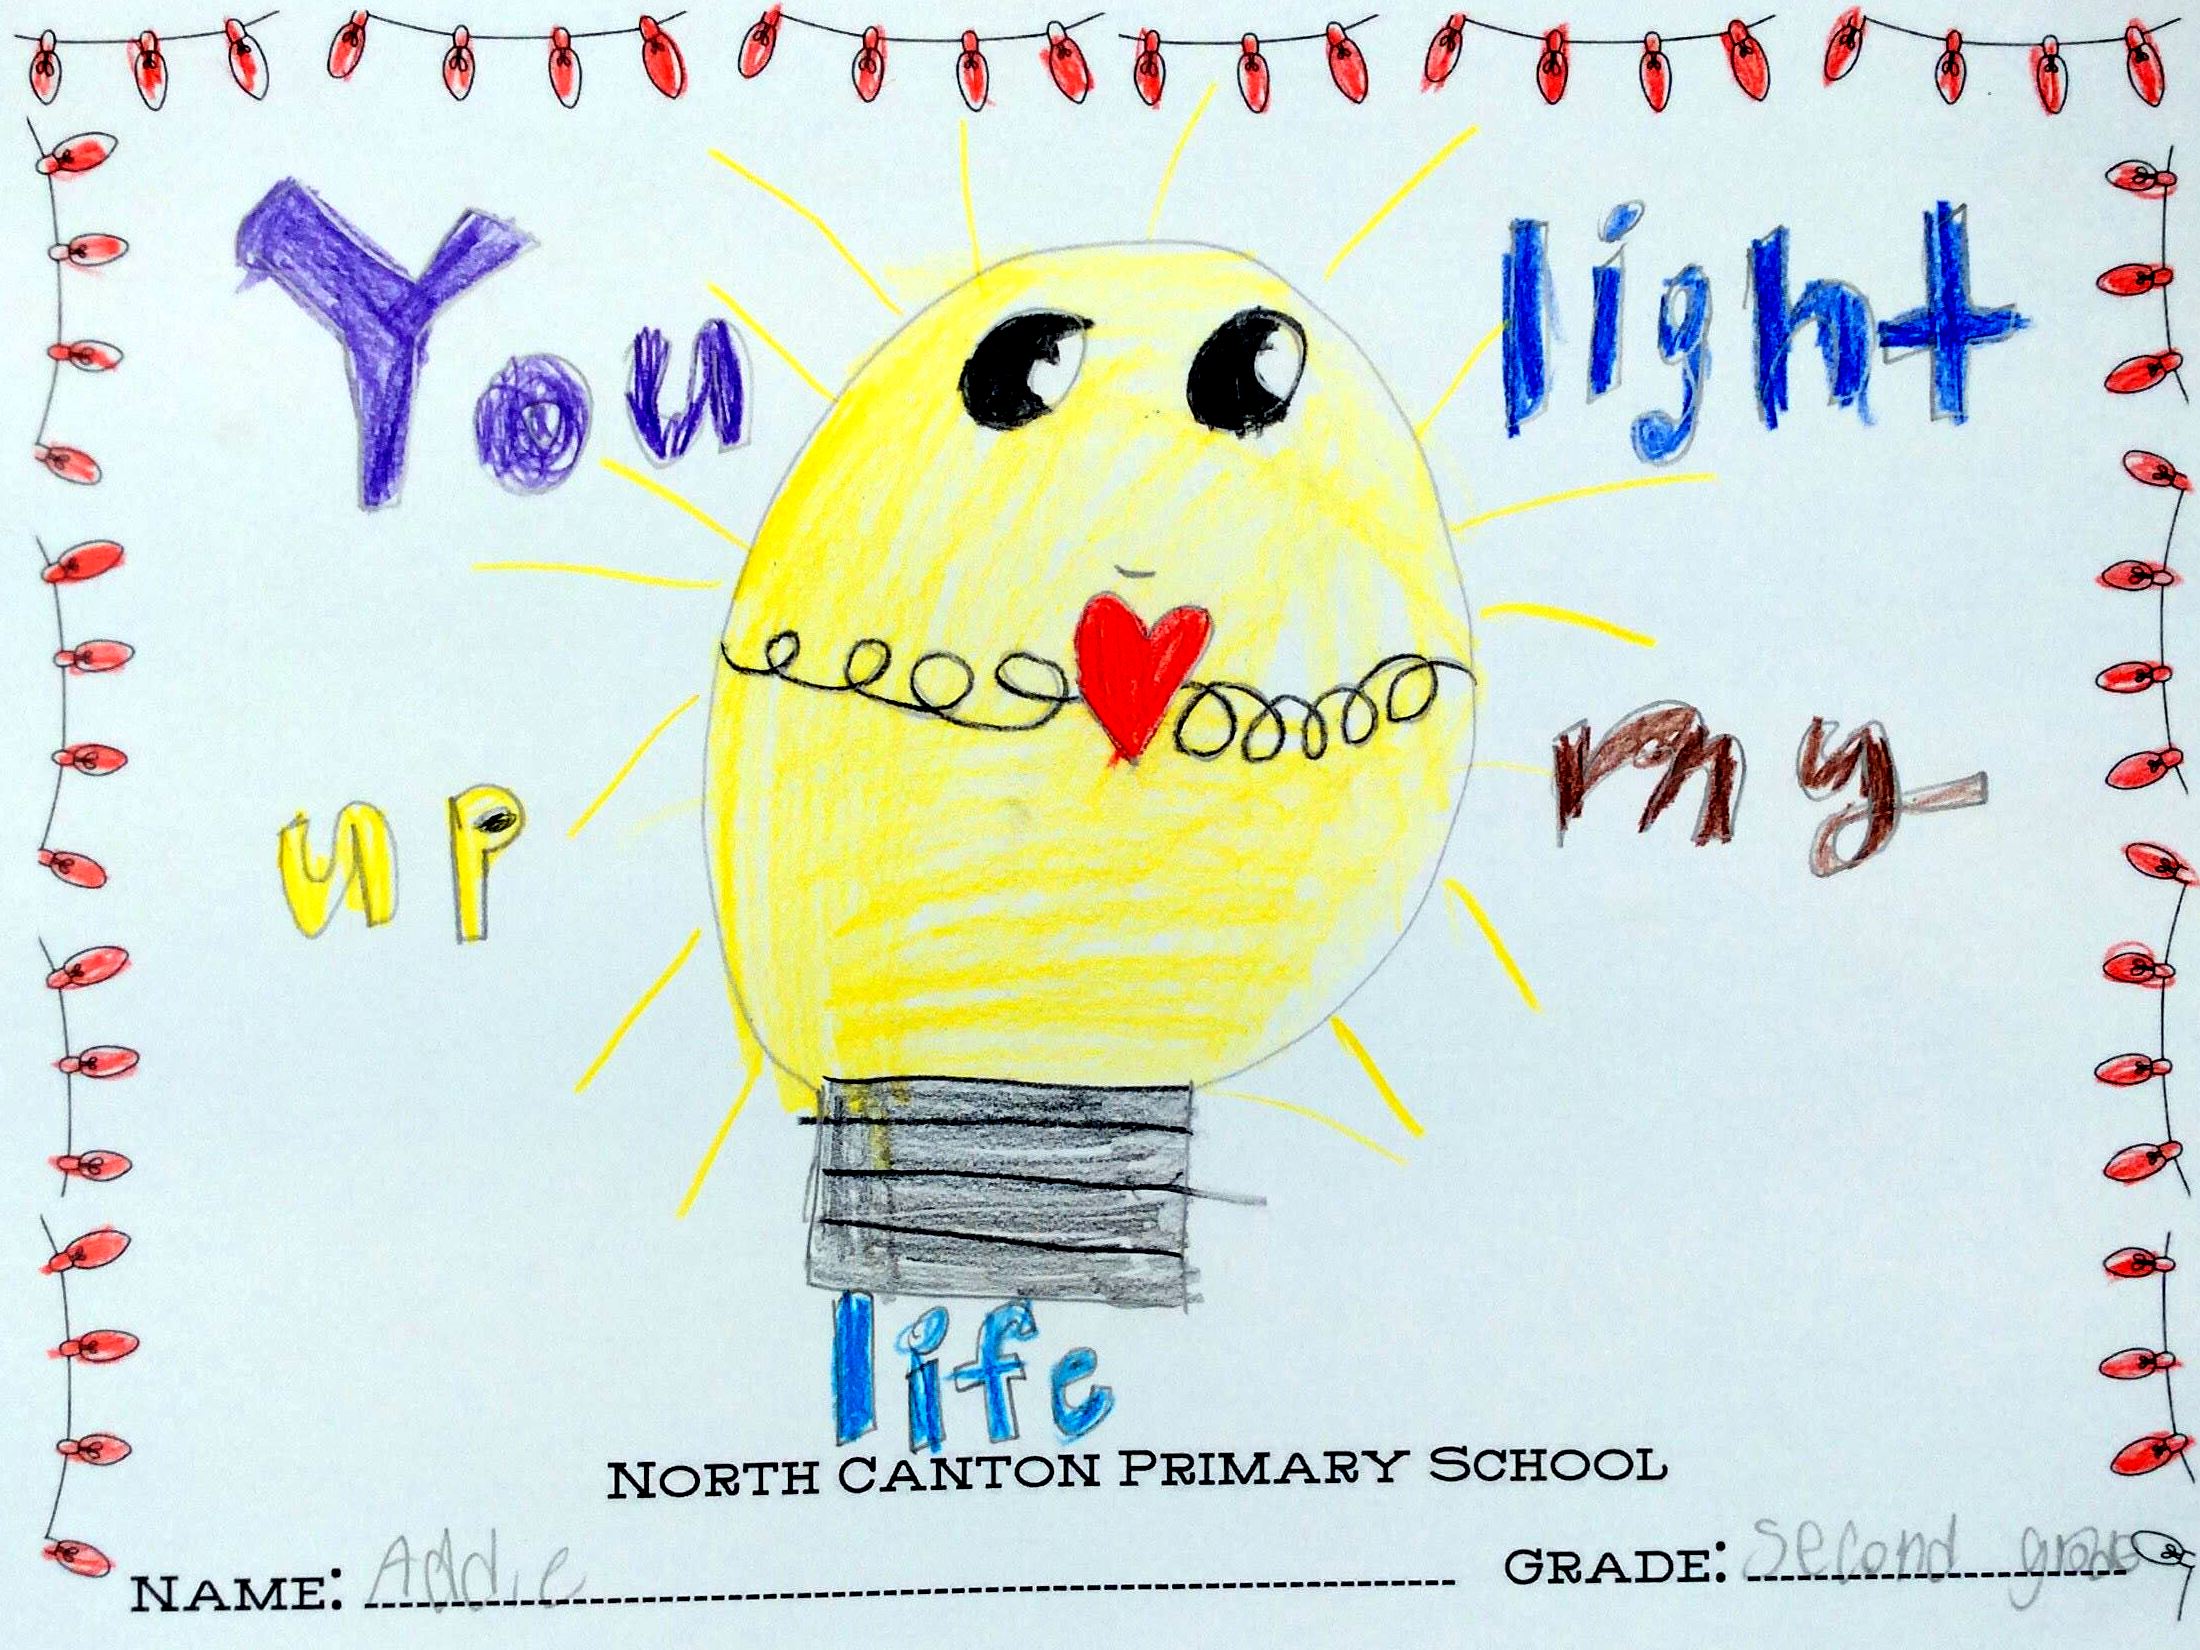 You light
up my
life
NORTH CANTON PRIMARY SCHOOL
NAME: Addie GRADE: Second grade